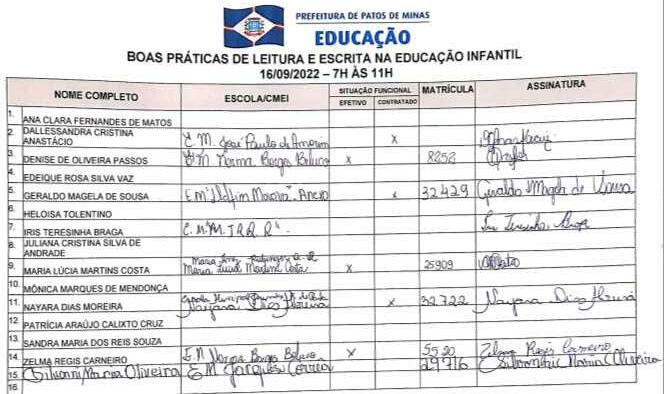 PREFEITURA DE PATOS DE MINAS
EDUCAÇÃO
BOAS PRÁTICAS DE LEITURA E ESCRITA NA EDUCAÇÃO INFANTIL
16/09/2022 – 7H ÀS 11H
NOME COMPLETO ESCOLA/CMEI SITUAÇÃO FUNCIONAL MATRÍCULA ASSINATURA
EFETIVO CONTRATADO
1. ANA CLARA FERNANDES DE MATOS
2. DALLESSANDRA CRISTINA ANASTÁCIO E.M. José Paulo de Amorim x
3. DENISE DE OLIVEIRA PASSOS E.M. Norma Borges Beluco x 8258
4. EDEIQUE ROSA SILVA VAZ
5. GERALDO MAGELA DE SOUSA x 32429 Geraldo Magela de Sousa
6. HELOISA TOLENTINO
7. IRIS TERESINHA BRAGA Iris Teresinha Braga
8. JULIANA CRISTINA SILVA DE ANDRADE
9. MARIA LÚCIA MARTINS COSTA Maria Lúcia Martins Costa x 25909
10. MÔNICA MARQUES DE MENDONÇA
11. NAYARA DIAS MOREIRA Nayara Dias Moreira x 32722 Nayara Dias Moreira
12. PATRÍCIA ARAÚJO CALIXTO CRUZ
13. SANDRA MARIA DOS REIS SOUZA
14. ZELMA REGIS CARNEIRO E.M Norma Borges Beluco x 5520 Zelma Regis Carneiro
15. Silvani Maria Oliveira E M Jacques Correa 29716
16.